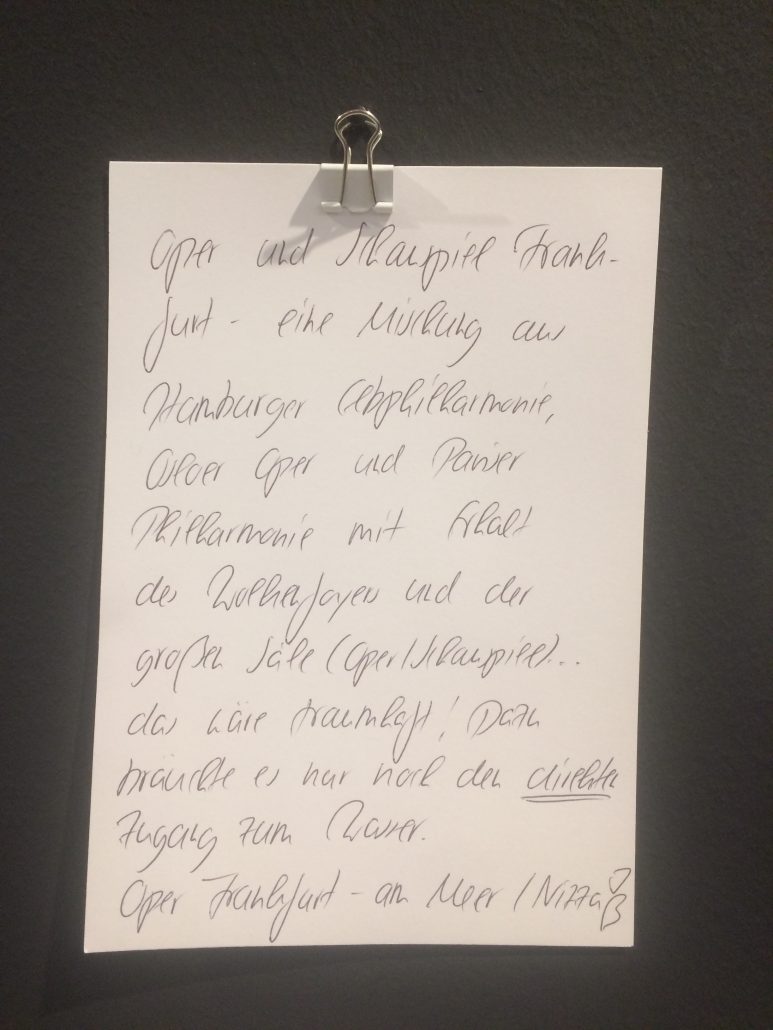 Oper und Schauspiel Frank-
furt - eine Mischung aus
Hamburger Elbphilharmonie,
Osloer Oper und Pariser
Philharmonie mit Erhalt
des Wolkenfoyers und der
großen Säle (Oper/Schauspiel)...
das wäre traumhaft! Dazu
bräuchte es nur noch den direkten
Zugang zum Wasser.
Oper Frankfurt - am Meer / Nizza